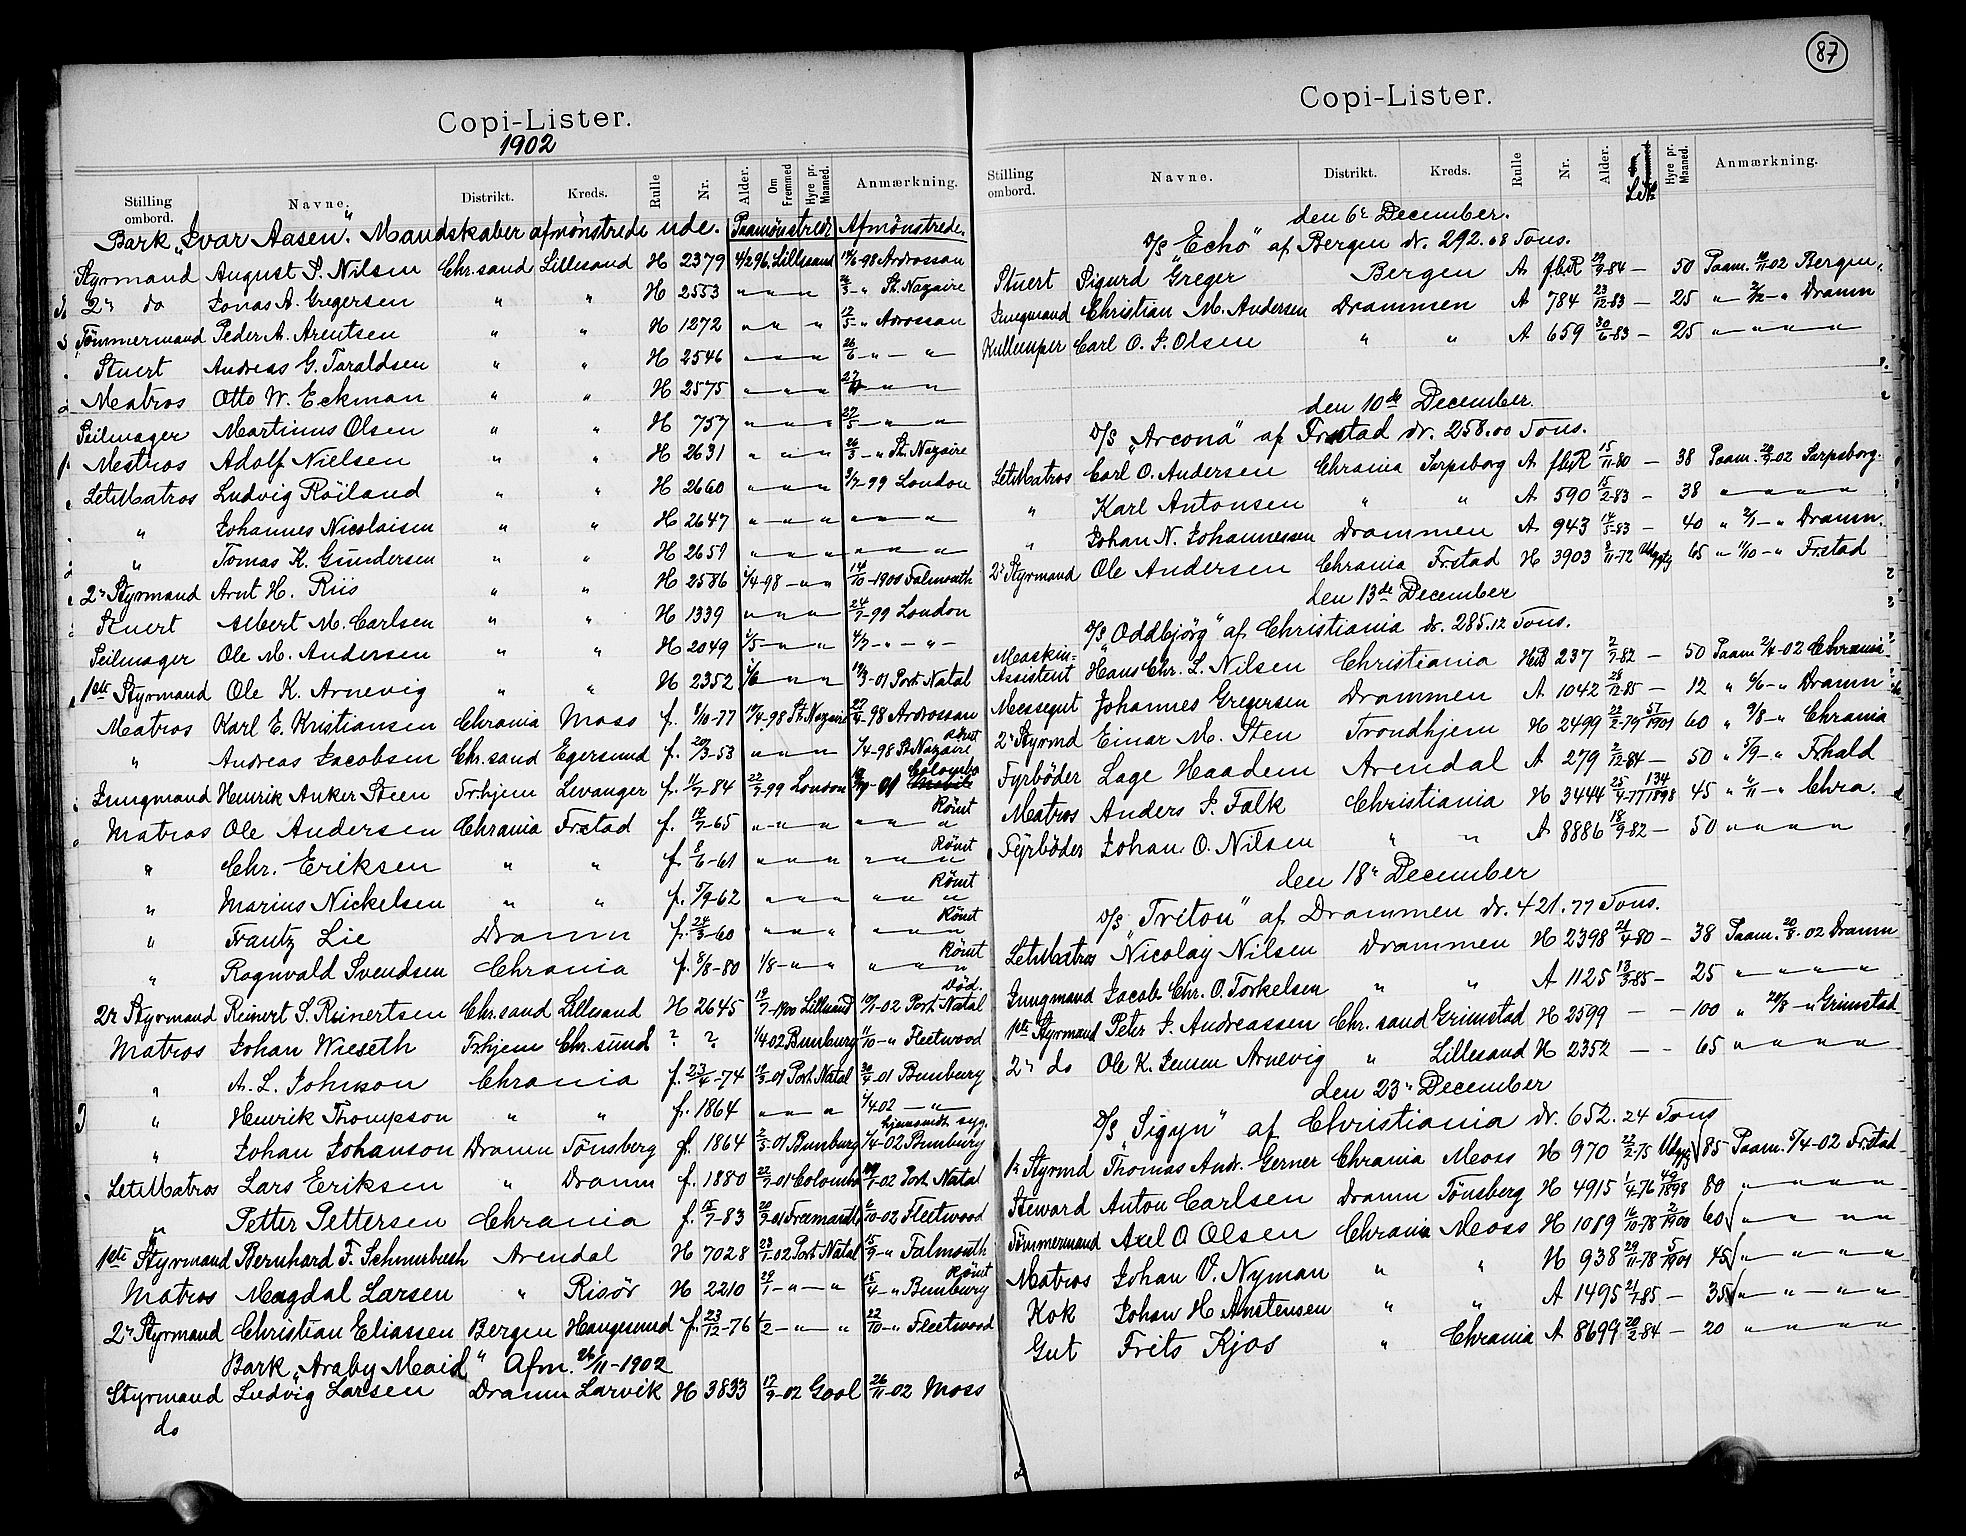 Copi-Lister.
1902
Stilling ombord. Navne. Distrikt. Kreds. Rulle Nr. Alder. Om Fremmed Hyre pr. Maaned. Anmærkning.
Bark "Ivar Aasen". Mandskaber afmönstrede ude. Paamönstrede Afmönstrede.
Styrmand August S. Nilsen Chr.sand Lillesand H 2379 4/2 96. Lillesand 14/6-98 Ardrossan
2n do Jonas A. Gregersen " " H 2553 " " " 26/3 - " St. Nazaire
Tömmermand Peder A. Arentsen " " H 1272 " " " 12/5 - " Adrossan
Stuert Andreas G. Taraldsen " " H 2546 " " " 26/6 - " - "
Matros Otto W. Eckman " " H 2575 " " " " "
Seilmager Martinus Olsen " " H 757 " " " 27/5 " "
Mestros Adolf Nielsen " " H 2631 " " " 26/3 - " St. Nazaire
LetMatros Ludvig Röiland " " H 2660 " " " 3/7-99 London
" Johannes Nicolaisen " " H 2647 " " " " " "
" Tomas K. Gundersen " " H 2651 " " " " " "
2n Styrmand Arnt H. Riis " " H 2586 1/4-98 - " " 14/10-1900 Falmouth
Stuert Albert M. Carlsen " " H 1339 " " " 24/7-99 London
Seilmager Ole M. Andersen " " H 2049 1/5 - " " 4/7 - " - " -
1ste Styrmand Ole K. Arnevig " " H 2352 1/6 - " " 19/3-01 Port Natal
Matros Karl E. Kristiansen Chrania Moss f. 8/10-77 14/4-98 St. Nazaire 27/4-98 Ardrossan
" Andreas Jacobsen Chr.sand Egersund f. 20/3-53 " " " 1/4-98 St Nazaire Römt
Jungmand Henrik Anker Steen Trhjem Levanger f. 11/7-84 22/7-99 London Colombo
Matros Ole Andersen Chrania Frstad f. 19/7-65 " " " " " Römt
" Chr. Eriksen " " f. 8/6-61 " " " " " Römt
" Marius Nickelsen " " f. 5/9-62 " " " " " Römt
" Frantz Lie Dramn f. 24/3-60 " " " " " Römt
" Ragnvald Svendsen Chrania f. 8/8-80 1/8 - " " " " Römt
2n Styrmand Reinert S. Reinertsen Chr.sand Lillesand H 2645 19/7-1900 Lillesand 19/1-02 Port Natal Död.
Matros Johan Wieseth Trhjem Chr.sund ? ? 1/4 02 Bunbury 11/10 - " Fleetwood
" A. L. Johnson Chrania f. 23/4-74 19/3-01 Port Natal 30/4-01 Bunbury
" Henrik Thompson " " f. 1864 " " " 1/4 02 - " -
" Johan Johanson Dramn Tönsberg f. 1864 2/5-01 Bunbury 1/4-02 Bunbury hjemsendt syg.
LetMatros Lars Eriksen " Dramn f. 1880 22/7-01 Colombo 29/1-02 Port Natal
" Petter Pettersen Chrania f. 15/7-83 20/9-01 Freemantle 11/10-02 Fleetwood
1ste Styrmand Bernhard F. Schnurbush Arendal H 7028 23/1-02 Port Natal 15/9 - " Falmouth
Matros Magdal Larsen " Risör H 2210 29/1 - " - " 15/4 - " Bunbury Römt
2n Styrmand Christian Eliassen Bergen Haugesund f. 23/12-76 1/2 - " - " 22/10 - " Fleetwood
Bark "Araby Maid" Afm. 26/11-1902
Styrmand Ludvig Larsen Dramn Larvik H 3833 17/9-02 Gool 26/11-02 Moss
do
87
Copi-Lister.
Stilling ombord. Navne. Distrikt. Kreds. Rulle Nr. Alder. Hyre pr. Maaned. Anmærkning.
den 6te December.
D/S "Echo" af Bergen dr. 292.08 Tons.
Stuert Sigurd Greger Bergen A fbR 29/9-84 - 50 Paam. 20/11-02 Bergen
Jungmand Christian M. Andersen Drammen A 784 23/12-83 - 25 " 2/12 - " Dramn
Kullemper Carl O. S. Olsen " " A 659 30/6-83 - 25 " " " "
den 10de December.
D/S "Arcona" af Frstad dr. 258.00 Tons.
LetMatros Carl O. Andersen Chrania Sarpsborg A fbR 15/11-80 - 38 Paam. 22/9-02 Sarpsborg.
" Karl Antonsen " " A 590 15/2-83 - 38 " " " "
" Johan N. Johannessen Drammen A 943 14/5-83 - 40 " 2/11 - " Dramn.
2n Styrmand Ole Andersen Chrania Frstad H 3903 3/11-72 Udygtg 65 " 11/10 - " Frstad
den 13de December
D/S "Oddbjörg" af Christiania dr. 285.12 Tons.
Maskin-Assistent Hans Chr. L. Nilsen Christiania HB 237 2/7-82 - 50 Paam 2/4-02 Chrania
Messegut Johannes Gregersen Drammen A 1042 28/12-85 - 12 " 6/6 - " Dramn
2n Styrmd Einar M. Sten Trondhjem H 2499 22/2-79 57/1901 60 " 9/8 - " Chrania
Fyrböder Lage Haadem Arendal A 279 2/12-84 - 50 " 5/9 - " Frhald
Matros Anders J. Falk Christiania H 3444 25/4-77 134/1898 45 " 6/11 - " Chra.
Fyrböder Johan O. Nilsen " " A 8886 18/9-82 - 50 " " " "
den 18n December
D/S "Triton" af Drammen dr. 421.77 Tons.
LetMatros Nicolay Nilsen Drammen H 2398 21/4-80 - 38 Paam. 20/8-02 Dramn
Jungmand Jacob Chr. O. Torkelsen " " A 1125 13/3-85 - 25 " " " "
1ste Styrmand Peter J. Andreassen Chr. sand Grimstad H 2599 - - 100 " 28/8 - " Grimstad
2n do Ole K. Jensen Arnevig " Lillesand H 2352 - - 65 " " " "
den 23n December
D/S "Sigyn" af Christiania dr. 652.24 Tons
1n Styrmd Thomas Andr. Gerner Chrania Moss H 970 22/2-75 Udygtg 85 Paam. 5/4-02 Frstad
Steward Anton Carlsen Dramn Tönsberg H 4915 1/4-76 49/1898 80 " " " "
Tömmermand Axel O Olsen Chrania Moss H 1089 16/10-78 2/1900 60 " " " "
Matros Johan O. Nyman " " H 938 29/11-78 5/1901 45 " " " "
Kok Johan H Anstensen " " A 1495 21/1-85 - 35 " " " "
Gut Frits Kjos " Chrania A 8699 20/2-84 - 20 " " " "